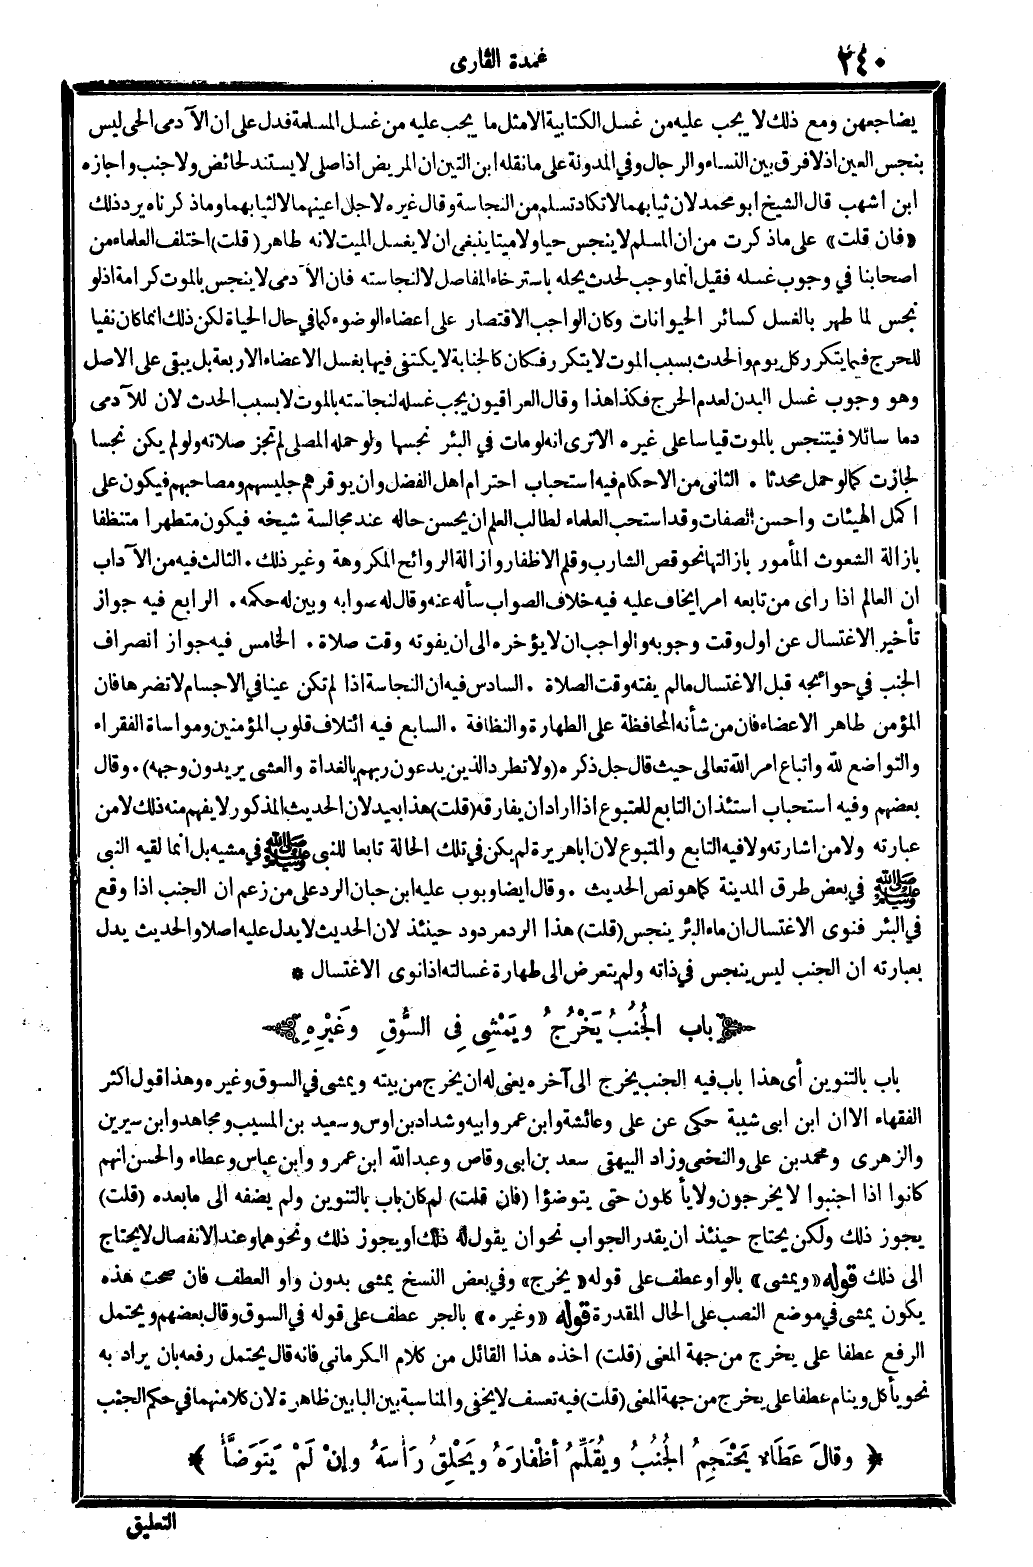 ٢٤٠
عمدة القارى
يضاجعهن ومع ذلك لا يجب عليه من غسل الكتابية الا مثل ما يجب عليه من غسل المسلمة فدل على ان الآدمى الحى ليس
بنجس العين اذ لا فرق بين النساء والرجال وفي المدونة على ما نقله ابن التين ان المريض اذا صلى لا يستند لحائض ولا جنب واجازه
ابن اشهب قال الشيخ ابو محمد لان ثيابهما لا تكاد تسلم من النجاسة وقال غيره لاجل اعينهما لا لثيابهما وما ذكرناه يرد ذلك
«فان قلت» على ما ذكرت من ان المسلم لا ينجس حيا ولا ميتا ينبغى ان لا يغسل الميت لانه طاهر (قلت) اختلف العلماء من
اصحابنا في وجوب غسله فقيل انما وجب لحدث يحله باسترخاء المفاصل لا لنجاسته فان الآدمى لا ينجس بالموت كرامة اذ لو
نجس لما طهر بالغسل كسائر الحيوانات وكان الواجب الاقتصار على اعضاء الوضوء كما في حال الحياة لكن ذلك انما كان نفيا
للحرج فيما يتكرر كل يوم والحدث بسبب الموت لا يتكرر فكان كالجنابة لا يكتفى فيها بغسل الاعضاء الاربعة بل يبقى على الاصل
وهو وجوب غسل البدن لعدم الحرج فكذا هذا وقال العراقيون يجب غسله لنجاسته بالموت لا بسبب الحدث لان للآدمى
دما سائلا فيتنجس بالموت قياسا على غيره الا ترى انه لو مات في البئر نجسها ولو حمله المصلى لم تجز صلاته ولو لم يكن نجسا
لجازت كما لو حمل محدثا . الثانى من الاحكام فيه استحباب احترام اهل الفضل وان يوقرهم جليسهم ومصاحبهم فيكون على
اكمل الهيئات واحسن الصفات وقد استحب العلماء لطالب العلم ان يحسن حاله عند مجالسة شيخه فيكون متطهرا متنظفا
بازالة الشعوث المأمور بازالتها نحو قص الشارب وقلم الاظفار وازالة الروائح المكروهة وغير ذلك . الثالث فيه من الآداب
ان العالم اذا راى من تابعه امرا يخاف عليه فيه خلاف الصواب سأله عنه وقال له صوابه وبين له حكمه . الرابع فيه جواز
تأخير الاغتسال عن اول وقت وجوبه والواجب ان لا يؤخره الى ان يفوته وقت صلاة . الخامس فيه جواز انصراف
الجنب في حوائجه قبل الاغتسال ما لم يفته وقت الصلاة . السادس فيه ان النجاسة اذا لم تكن عينا في الاجسام لا تضرها فان
المؤمن طاهر الاعضاء فان من شأنه المحافظة على الطهارة والنظافة . السابع فيه ائتلاف قلوب المؤمنين ومواساة الفقراء
والتواضع لله واتباع امر الله تعالى حيث قال جل ذكره (ولا تطرد الذين يدعون ربهم بالغداة والعشى يريدون وجهه) . وقال
بعضهم وفيه استحباب استئذان التابع للمتبوع اذا اراد ان يفارقه (قلت) هذا بعيد لان الحديث المذكور لا يفهم منه ذلك لا من
عبارته ولا من اشارته ولا فيه التابع والمتبوع لان ابا هريرة لم يكن في تلك الحالة تابعا للنبى ﷺ في مشيه بل انما لقيه النبى
ﷺ في بعض طرق المدينة كما هو نص الحديث . وقال ايضا وبوب عليه ابن حبان الرد على من زعم ان الجنب اذا وقع
في البئر فنوى الاغتسال ان ماء البئر ينجس (قلت) هذا الرد مردود حينئذ لان الحديث لا يدل عليه اصلا والحديث يدل
بعبارته ان الجنب ليس ينجس في ذاته ولم يتعرض الى طهارة غسالته اذا نوى الاغتسال *
باب الجُنُبُ يَخْرُجُ ويَمْشِى فِى السُّوقِ وَغَيْرِهِ
باب بالتنوين أى هذا باب فيه الجنب يخرج الى آخره يعنى له ان يخرج من بيته ويمشى في السوق وغيره وهذا قول اكثر
الفقهاء الا ان ابن ابى شيبة حكى عن على وعائشة وابن عمر وابيه وشداد بن اوس وسعيد بن المسيب ومجاهد وابن سيرين
والزهرى ومحمد بن على والنخعى وزاد البيهقى سعد بن ابى وقاص وعبد الله ابن عمرو وابن عباس وعطاء والحسن انهم
كانوا اذا اجنبوا لا يخرجون ولا يأكلون حتى يتوضؤا (فان قلت) لم كان باب بالتنوين ولم يضفه الى ما بعده (قلت)
يجوز ذلك ولكن يحتاج حينئذ ان يقدر الجواب نحو ان يقول له ذلك او يجوز ذلك ونحوهما وعند الانفصال لا يحتاج
الى ذلك قوله «ويمشى» بالواو عطف على قوله «يخرج» وفي بعض النسخ يمشى بدون واو العطف فان صحت هذه
يكون يمشى في موضع النصب على الحال المقدرة قوله «وغيره» بالجر عطف على قوله في السوق وقال بعضهم ويحتمل
الرفع عطفا على يخرج من جهة المعنى (قلت) اخذه هذا القائل من كلام الكرمانى فانه قال يحتمل رفعه بان يراد به
نحو يأكل وينام عطفا على يخرج من جهة المعنى (قلت) فيه تعسف لا يخفى والمناسبة بين البابين ظاهرة لان كلا منهما في حكم الجنب
﴿ وقالَ عَطَاءٌ يَحْتَجِمُ الجُنُبُ ويُقَلِّمُ أظْفارَهُ ويَحْلِقُ رَأسَهُ وإنْ لَمْ يَتَوَضَّأْ ﴾
التعليق